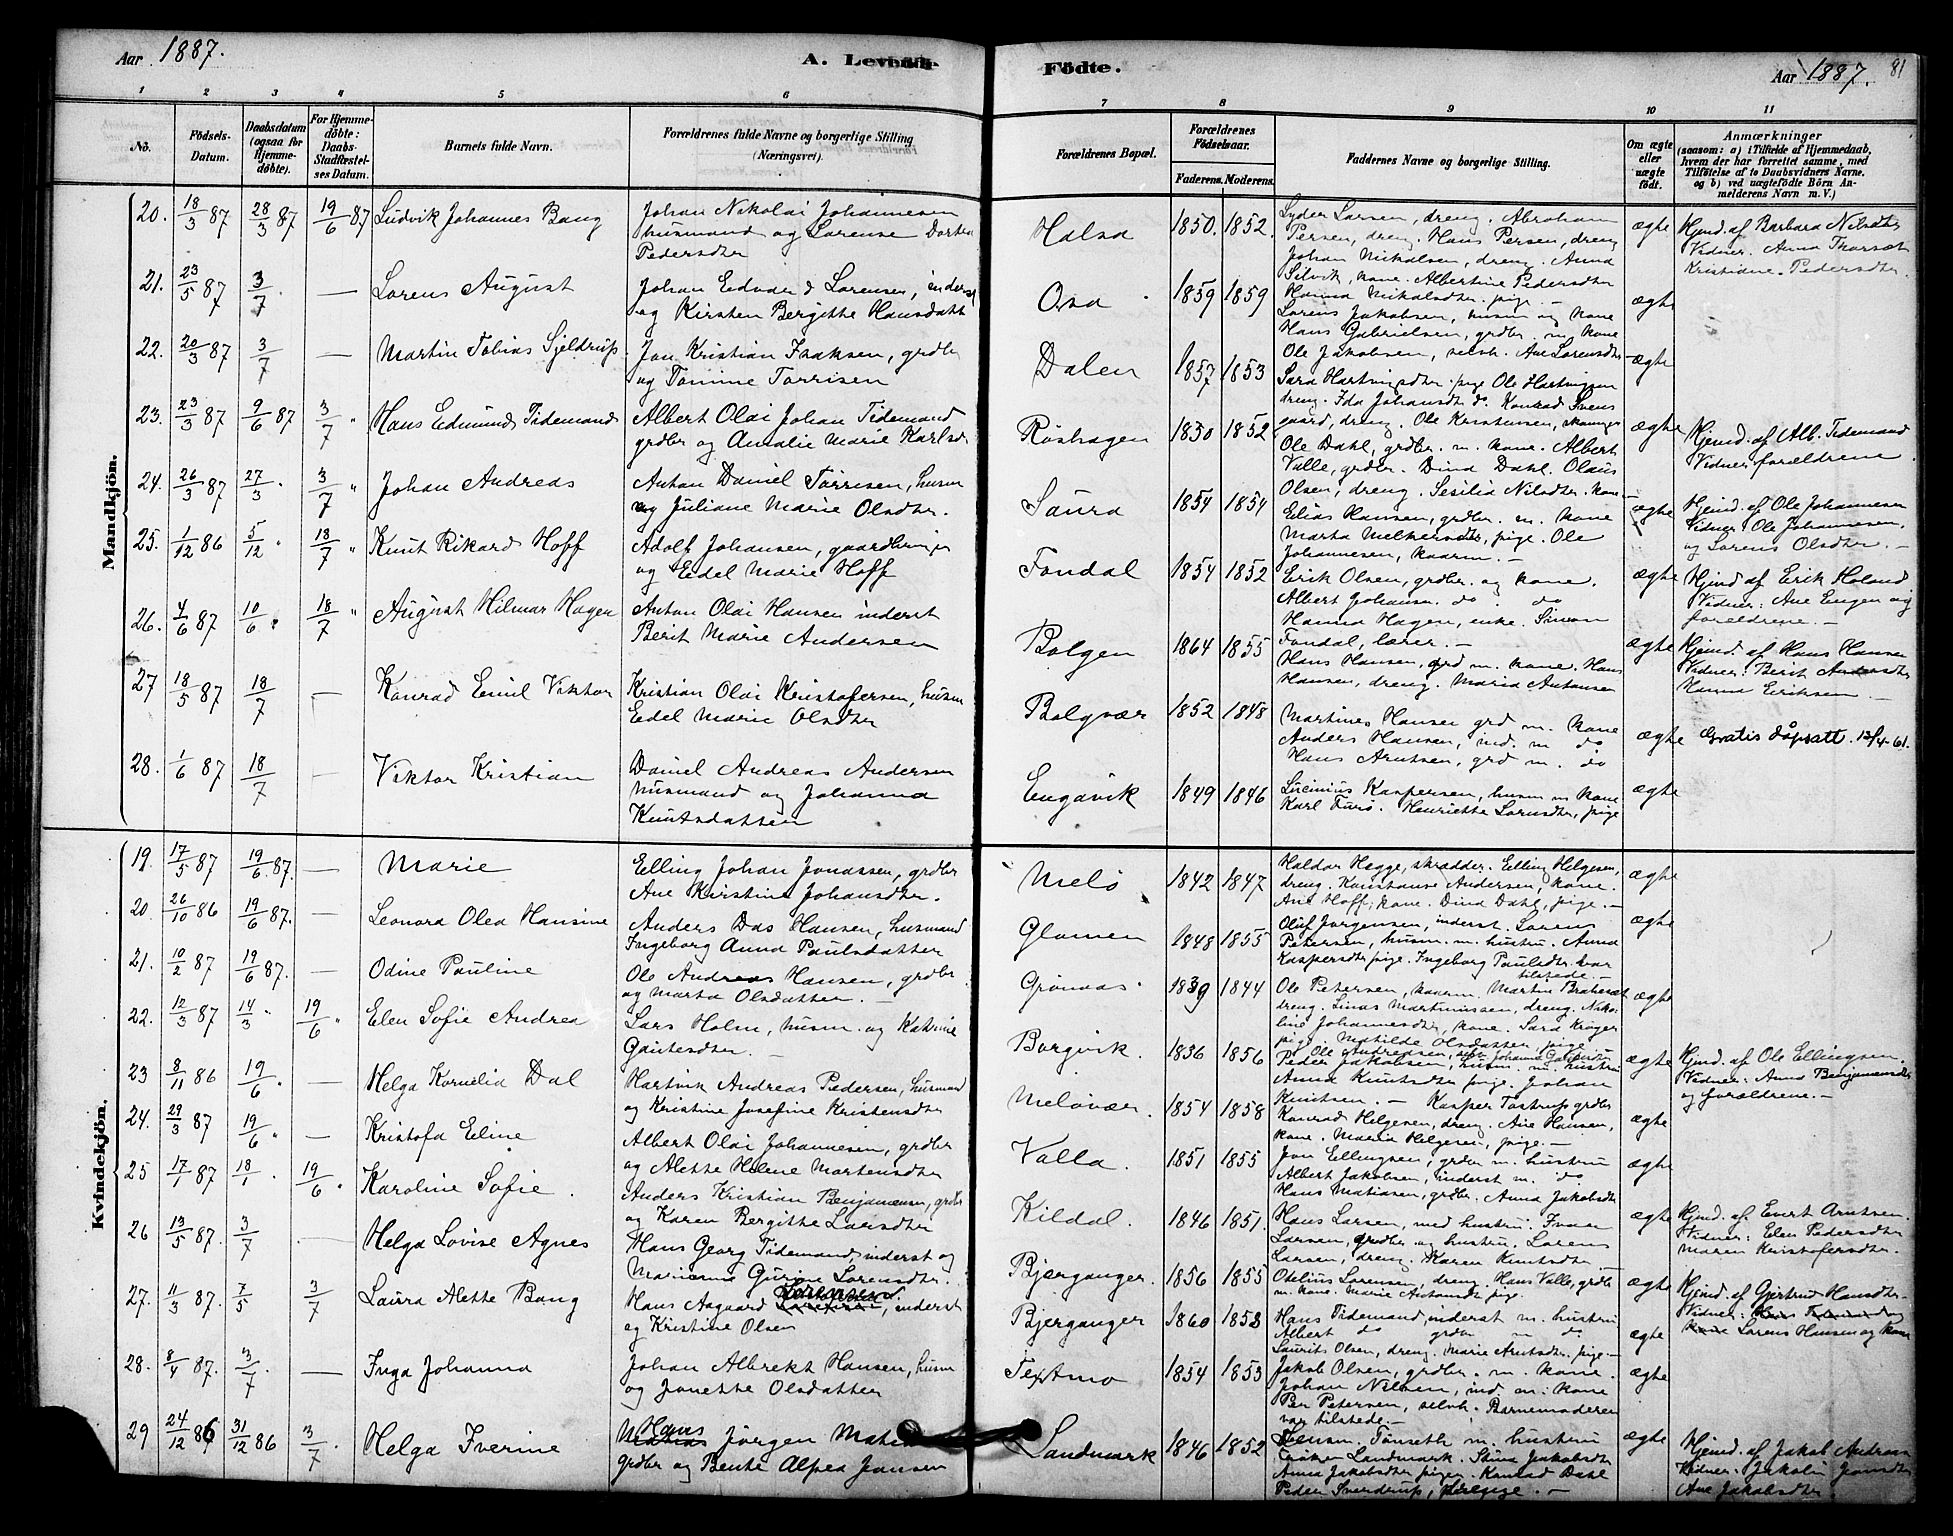 Aar 1887.
A. Levende
Födte.
Aar 1887.
81
1 2 3 4 5 6 7 8 9 10 11
No.
Födsels-
Datum.
Daabsdatum
(ogsaa for
Hjemme-
döbte).
For Hjemme-
döbte:
Daabs-
Stadfæstel-
ses Datum.
Barnets fulde Navn.
Forældrenes fulde Navne og borgerlige Stilling
(Næringsvei).
Forældrenes Bopæl.
Forældrenes
Födselsaar.
Faderens. Moderens.
Faddernes Navne og borgerlige Stilling.
Om ægte
eller
uægte
födt.
Anmærkninger
(saasom: a) i Tilfælde af Hjemmedaab,
hvem der har forrettet samme, med
Tilföielse af to Daabsvidners Navne,
og b) ved uægtefödte Börn An-
melderens Navn m. V.)
Mandkjön.
20. 18/3 87 28/3 87 19/6 87 Ludvik Johannes Bang
Johan Nikolai Johannesen
husmand og Lorense Dorthea
Pedersdter
Halsa 1850. 1852.
Lyder Larsen, dreng. Abraham
Persen, dreng. Hans Persen, dreng
Johan Nickolsen, dreng. Anna
Selvik, kone. Albertine Pedersdter
Hanna Nikolsdter. pige. —
ægte
Hjmd. af Barbara Nilsdtr
Vidner. Anna
Kristiane Pedersdtr.
21. 23/5 87 3/7. — Lorens August
Johan Edvard Lorensen, inderst
og Kirsten Bergitte Hansdatt
Osa 1859 1859
Lorens Jakobsen, husm og kone
Hans Gabrielsen, grdbr. m. kone
ægte
22. 20/3 87 3/7 — Martin Tobias Sjeldrup.
Jon Kristian Isaksen, grdbr
og Tomine Torrisen
Dalen 1857 1853
Ole Jakobsen, selvh. Ane Lorensdtr
Sara Hartvigsdter. pige Ole Hartvigsen
dreng. Ida Johansdt do. Konrad Svens
gaard, dreng. Ole Kristensen,
ægte
23. 23/3 87 9/6 87 3/7 " Hans Edmund Tidemand
Albert Olai Johan Tidemand
grdbr og Amalie Marie Karlsd
Röshagen 1850 1852
Ole Dahl, grdbr. m. kone. Albert
Valle, grdbr. Dina Dahl. Olaus
Olsen, dreng. Sesilia Nilsdtr. kone.
ægte
Hjmd. af Alb. Tidemand
Vidner forældrene.
24. 26/3 87 27/3. 3/7 " Johan Andreas
Anton Daniel Torrisen, husm
og Juliane Marie Olsdtr.
Saura 1854 1854
Elias Hansen, grdbr. m. kone
Marta Melkersdtr, pige. Ole
Johannesen, kaarm. —
ægte
Hjmd. af Ole Johannesen
Vidner Ole Johannesen,
og Lorens Olsdtr. —
25. 1/12 86 5/12 " 18/7 " Knut Rikard Hoff
Adolf Johansen, gaardbruger
og Edel Marie Hoff
Fondal 1854 1852
Erik Olsen, grdbr. og kone.
Albert Johansn. do. do
Hanna Hagen, enke. Simon
Fondal, lærer. —
ægte
Hjmd af Erik Holand
Vidner: Ane Engen og
forældrene. —
26. 4/6 87 10/6 " 18/7 " August Hilmar Hagen
Anton Olai Hansen inderst
Berit Marie Andersen
Bolgen 1864 1855
Hans Hansen, grd m. kone. Hans
Hansen, dreng. Maria Antonsen
ægte
Hjmd. af Hans Hansen
Vidner: Berit Andersdtr
Hanna Eriksen. —
27 18/5 87 18/7 — Konrad Emil Viktor
Kristian Olai Kristofersen, husm
Edel Marie Olsdter
Bolgvær 1852 1848
Martines Hansen grd m. kone
Anders Hansen, ind. m do
Hans Arntsen, grd m. do
ægte
Gratis dåpsatt. 13/4-61.
28. 1/6 87 18/7 — Viktor Kristian
Daniel Andreas Andersen
husmand og Johanna
Knutsdatter
Engavik 1849 1846
Lucinius Kaspersen, husm m kone
Karl Furö. Henriette Lornsdtr, pige
ægte
Kvindekjön.
19. 17/5 87 19/6 87. — Marie
Elling Johan Jonassen, grdbr
Ane Kirstine Johansdtr.
Melö 1842 1847
Haldor Hegge, skrædder. Elling Helgesen,
dreng. Konstanse Andersen, kone.
Ane Hoff, kone. Dina Dahl, pige. —
ægte
20. 26/10 86 19/6 87. — Leonora Olea Hansine
Anders Das Hansen, husmand
Ingeborg Anna Paulsdatter
Glomen 1848 1855
Oluf Jorgensen, inderst. Lorens
Petersen, husm. m. hustru. Anna
Kaspersdtr pige. Ingeborg Paulsdtr. var
tilstede. —
ægte
21. 10/2 87 19/6 87. — Odine Pauline
Ole Andreas Hansen, grdbr
og Marta Olsdatter. —
Grönaas. 1839 1844
Ole Petersen, kaarm. Martin
dreng. Linas Martinussen, dreng. Niko-
line Johannesdtr, kone. Sara Kröger
pige. Matilde Olsdatter, pige
ægte
22. 12/3 87 14/3 " 19/6 " Elen Sofie Andrea
Lars Holm, husm. og Katrine
Gautesdter. —
Borgvik. 1836 1856
Ole Andreasen,
Peder Jakobsen, husm. m. hustru
Anna Knutsdtr pige. Johan
Knutsen. —
ægte
Hjmd. af Ole Ellingsen.
Vidner: Anna Benjaminsdtr
og forældrene. —
23 8/11 86 19/6. — Helga Kornelia Dal
Hartvik Andreas Pedersen, husmand
og Kristine Josefine Kristensdtr
Melövær. 1854 1858
Kasper Tostrup grdbr
Konrad Helgesen, dreng. Ane Hansen,
kone. Maria Helgesen, pige. —
ægte
24. 29/3 87 19/6 " — Kristofa Eline
Albert Olai Johannesen, grdbr
og Alette Helene Mortensdtr
Valla. 1851 1855
Jon Ellingsen, grdbr m. hustru
Albert Jakobsen, inderst m. do
Hans Matiasen, grdbr. Anna Jakobsdtr
ægte
25 17/1 87 18/1. 19/6. Karoline Sofie.
Anders Kristian Benjaminsen, grdbr
og Karen Bergitte Larsdter
Kildal. 1846 1851.
Hans Larsen, med hustru. Ivar
Larsen, grdbr og hustru. Lorens
Larsen, dreng. Karen Knutsdtr. —
ægte
Hjmd. af. Evert Arntsen.
Vidner: Elen Pedersdtr
Maren Kristofersdtr.
26 13/5 87. 3/7 — Helga Lovise Agnes
Hans Georg Tidemand, inderst og
Marianna Gurine Lorensdtr.
Bjerganger. 1856 1855
Odelius Lorensen, dreng. Hans Valle, grdbr
m. kone. Marie Antonsdt pige.
ægte
27. 11/3 87. 7/5 3/7 Laura Alette Bang
Hans Aagaard, inderst
og Kristine Olsen
Bjerganger 1860 1858
Hans Tidemand, inderst m. hustru
Albert do grdbr m do
Laurits Olsen, dreng. Marie Arntsdtr. pige. —
ægte
Hjmd. af Gjertrud Hansdtr.
Vidner: Lorens Hansen og kone
28. 8/4 87. 3/7. — Inga Johanna
Johan Albrekt Hansen, husm
og Jonette Olsdatter
Texmo 1854 1853
Jakob Olsen, grdbr. m. kone.
Johan Nilsen, ind m. kone
Per Petersen, selvh. Barnemoderen
var tilstede. —
ægte
29 24/12 86 31/12 86 3/7. Helga Iverine
Hans Jörgen
grdbr og Bente Alfea Jonsen
Sandmark 1846 1852
Tönseth m. hustru
Landmark. Stina Jakobsdtr
Anna Jakobsdtr piger. Konrad Dahl
Peder Sverdrup, —
ægte
Hjmd. af Jakob Andreas
Vidner: Jakobi
Ane Jakobsdtr.